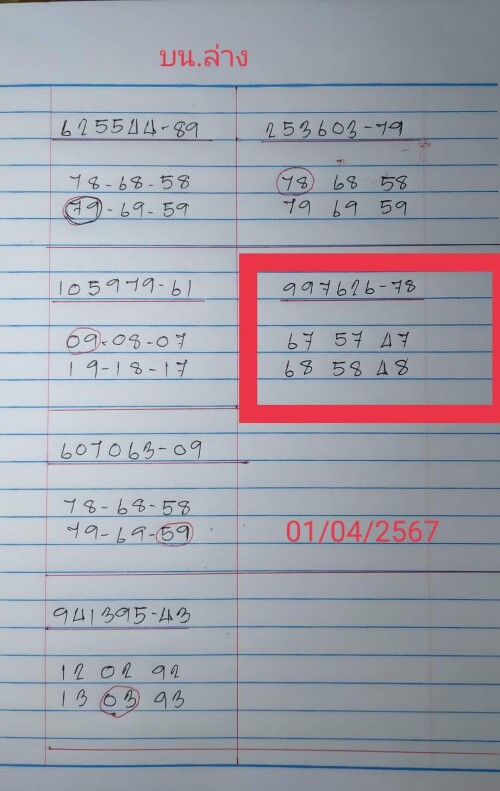 บน.ล่าง
625544-89
78-68-58
79-69-59
105979-61
09-08-07
19-18-17
607063-09
78-68-58
79-69-59
941395-43
12 02 92
13 03 93
253603-79
78 68 58
79 69 59
997626-78
67 57 47
68 58 48
01/04/2567